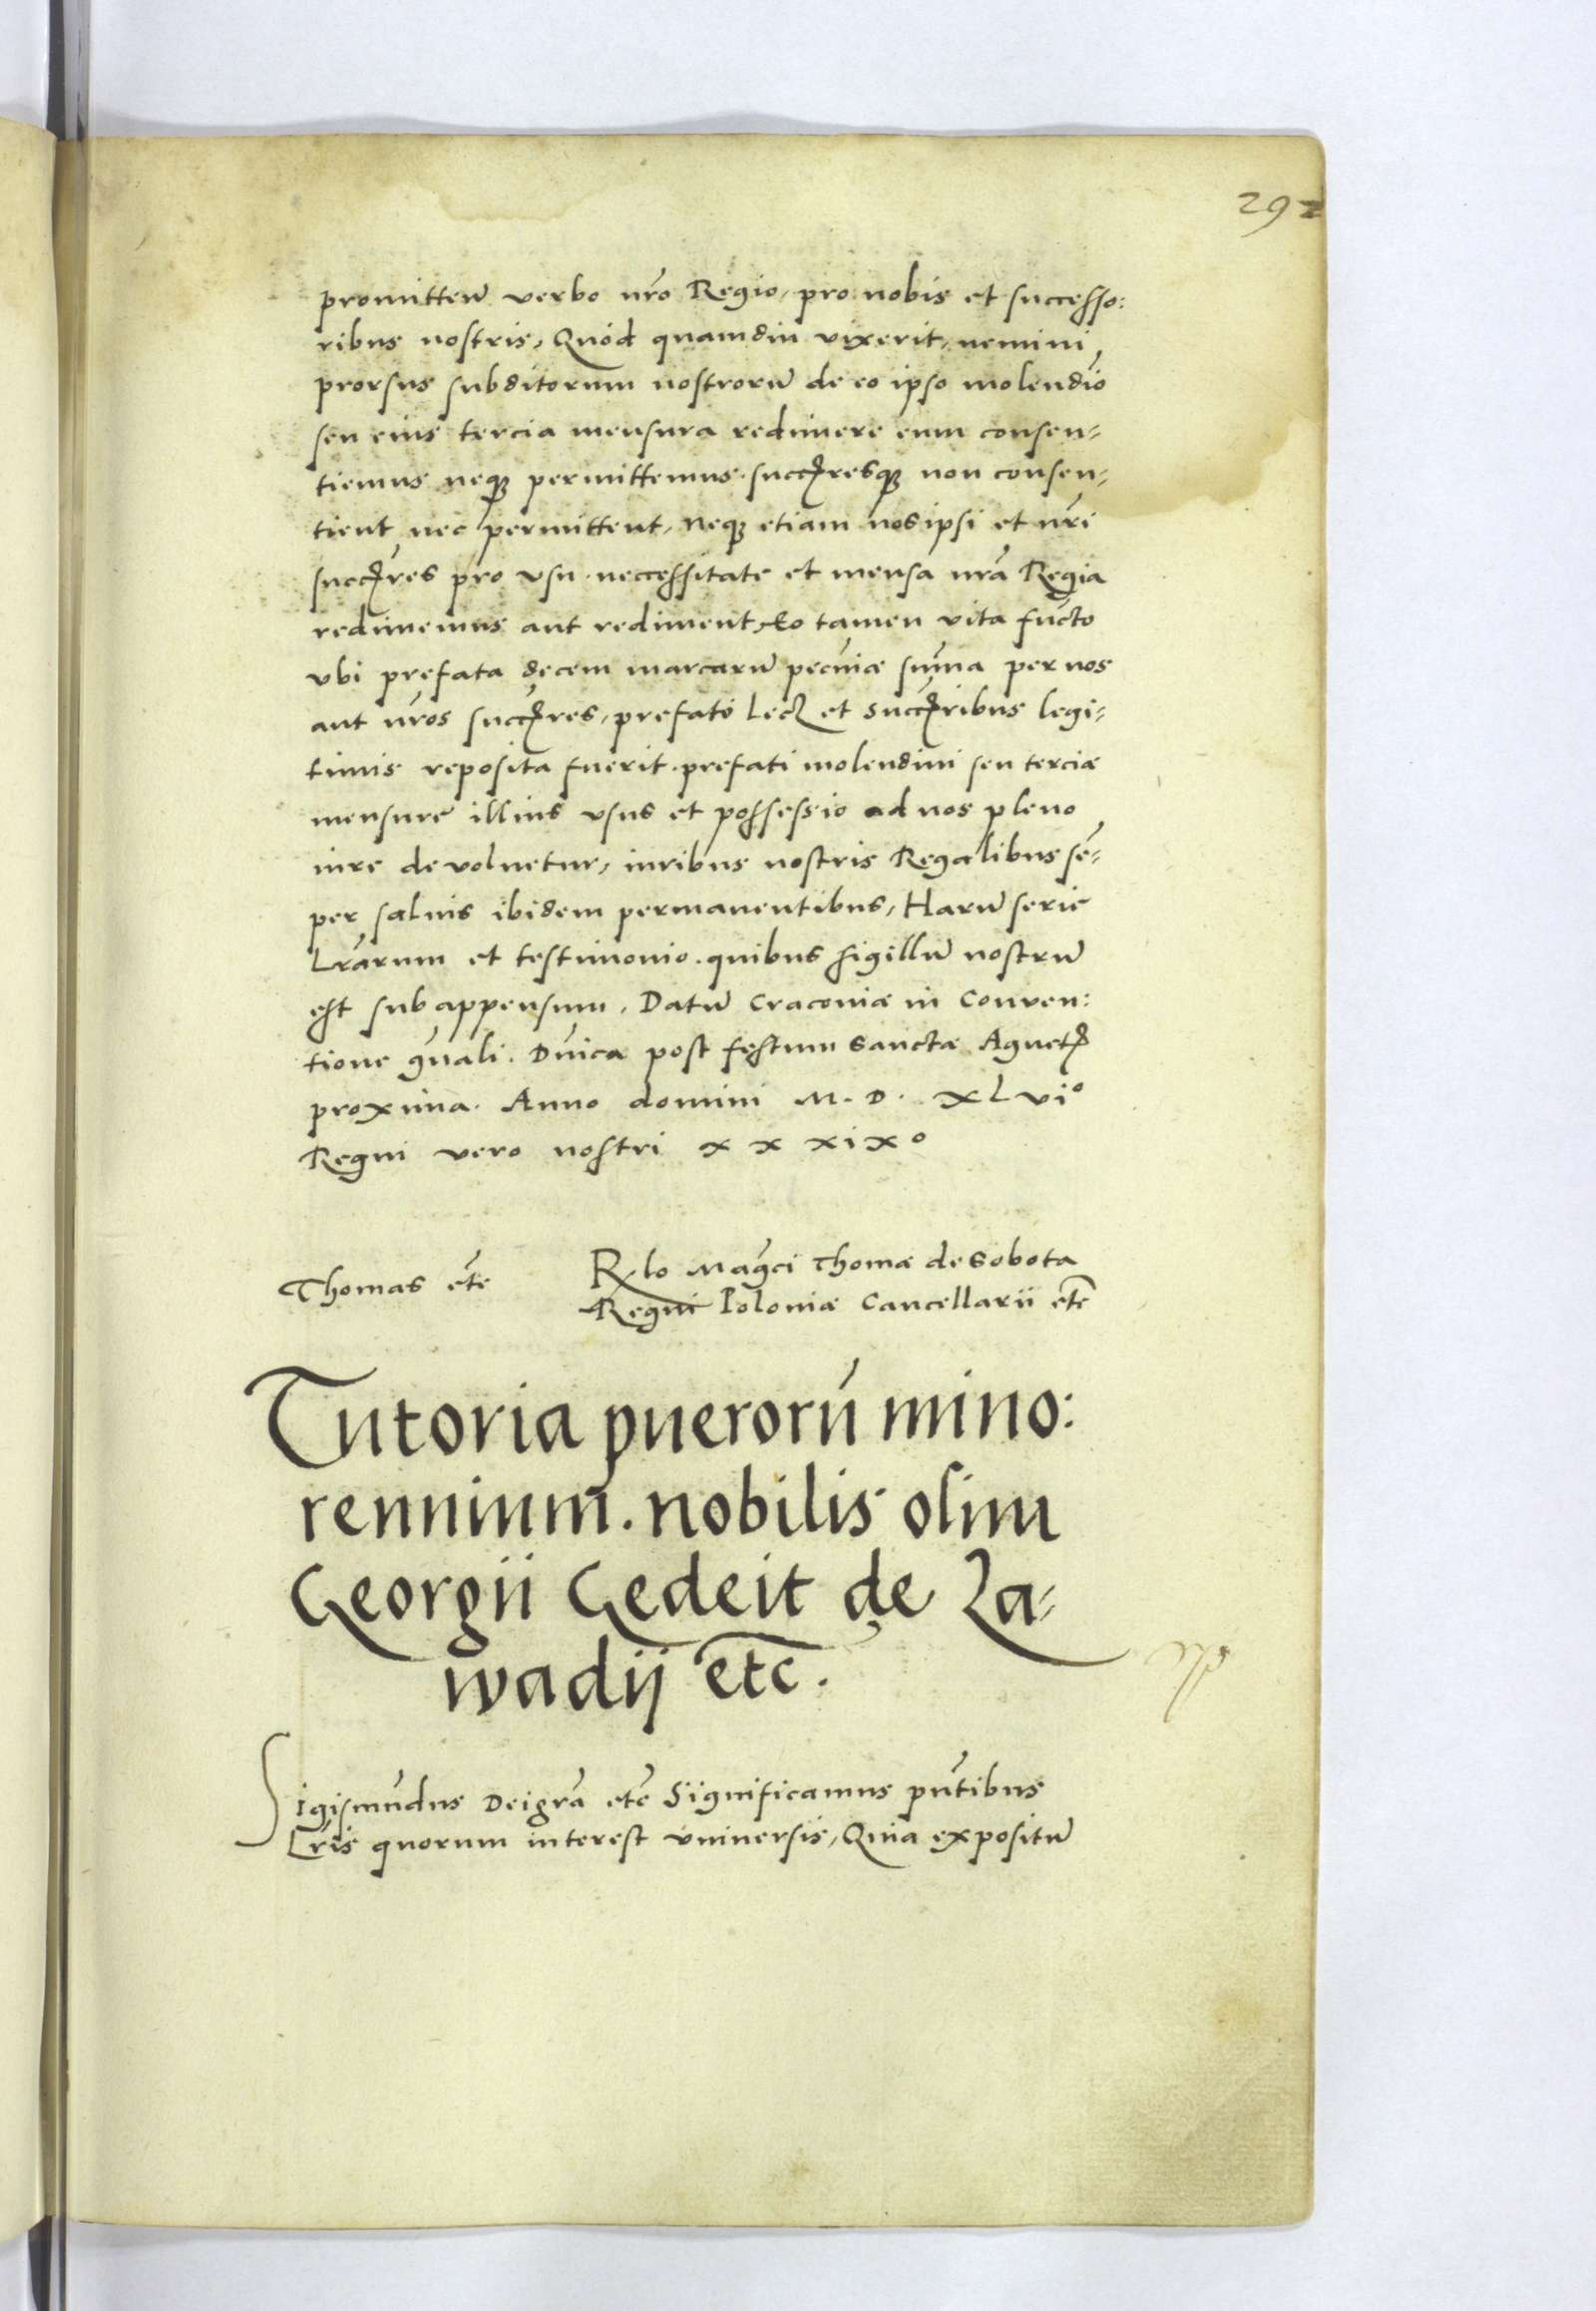 292
promitteñ verbo nr̃o Regio, pro nobis et successo:
ribus nostris, Quòd quamdiu vixerit, nemini
prorsus subditorum nostrorũ de eo ipso molendĩo
seu eius tercia mensura redimere eum consen-
tiemus neqꝫ permittemus. succꝭresqꝫ non consen-
tient, nec permittent, Neqꝫ etiam nos ipsi et nr̃i
succꝭres pro vsu necessitate et mensa nr̃a Regia
redimemus aut rediment, Eo tamen vita fũcto
vbi prefata decem marcarũ pecuniæ sum̃a per nos
aut nr̃os succꝭres, prefato Leczͅ et succꝭribus legi-
timis reposita fuerit. prefati molendini seu terciæ
mensure illius vsus et possessio ad nos pleno
iure devoluetur, iuribus nostris Regalibus sẽ-
per saluis ibidem permanentibus, Harũ serie
Lr̃arum et testimonio. quibus sigillũ nostrũ
est subappensum. Datũ Cracouiæ in Conuen:
tione gñali. Dñica post festum sanctæ Agnetꝭ
proxima. Anno domini M. D. XLvi°
Regni vero nostri xxxix°
Thomas etc̃
Rẽlo Mag̃ci Thomæ de Sobota
Regni Poloniæ Cancellarii etc̃
Tutoria puerorũ mino:
rennium. nobilis olim
Georgii Gedeit de Za-
wadij etc̃.
Sigismũdus Dei gr̃a etc̃ Significamus pñtibus
Lr̃is quorum interest vniuersis, Quia expositũ